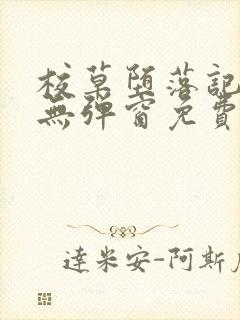 校草堕落記
無彈窗免費
達米安-阿斯